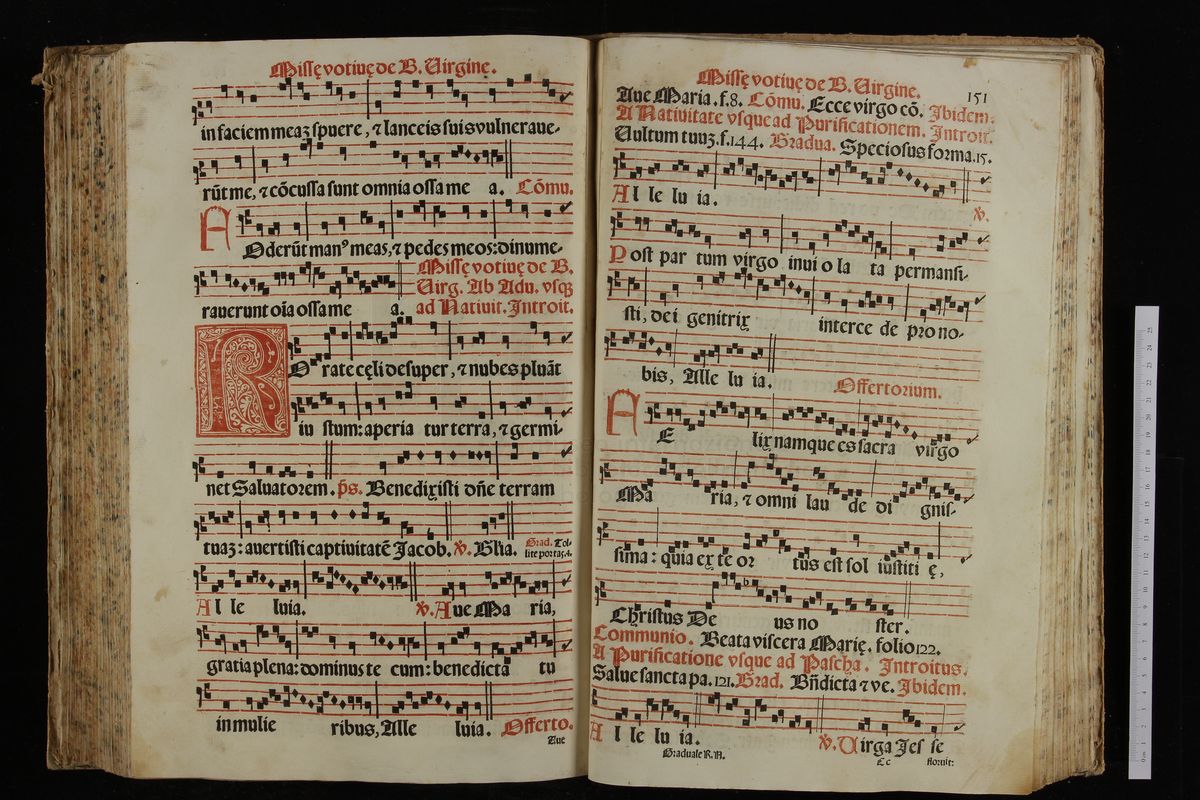 Missę votiuę de B. Uirgine.
in faciem meaȝ spuere, ⁊ lanceis suis vulneraue-
rūt me, ⁊ cōcussa sunt omnia ossa me a. Cōmu.
A
Dderūt manꝰ meas, ⁊ pedes meos: dinume-
rauerunt oīa ossa me a.
Missę votiuę de B.
Uirg. Ab Adu. vsqȝ
ad Natiuit. Introit.
R
O rate cęli desuper, ⁊ nubes pluāt
iu stum: aperia tur terra, ⁊ germi-
net Saluatorem. p̄s. Benedixisti dn̄e terram
tuaȝ: auertisti captiuitatē Jacob. ℣. Gl̄ia. Grad. Tol-
lite portas. 4.
Al le luia. ℣. Aue Ma ria,
gratia plena: dominus te cum: benedicta tu
in mulie ribus, Alle luia. Offerto.
Aue
Missę votiuę de B. Uirgine.
151
Aue Maria. f. 8. Cōmu. Ecce virgo cō. Ibidem.
A Natiuitate vsque ad Purificationem. Introit.
Uultum tuuȝ. f. 144. Gradua. Speciosus forma. 15.
Al le lu ia. ℣.
Post par tum virgo inui o la ta permansi-
sti, de i genitrix interce de pro no-
bis, Alle lu ia. Offertorium.
F
E lix namque es sacra virgo
Ma ria, ⁊ omni lau de di gnis-
sima: quia ex te or tus est sol iustiti ę,
Christus De us no ster.
Communio. Beata viscera Marię. folio 122.
A Purificatione vsque ad Pascha. Introitus.
Salue sancta pa. 121. Grad. Bn̄dicta ⁊ ve. Ibidem.
Al le lu ia. ℣. Uirga Jes se
Graduale R. A. Cc floruit: